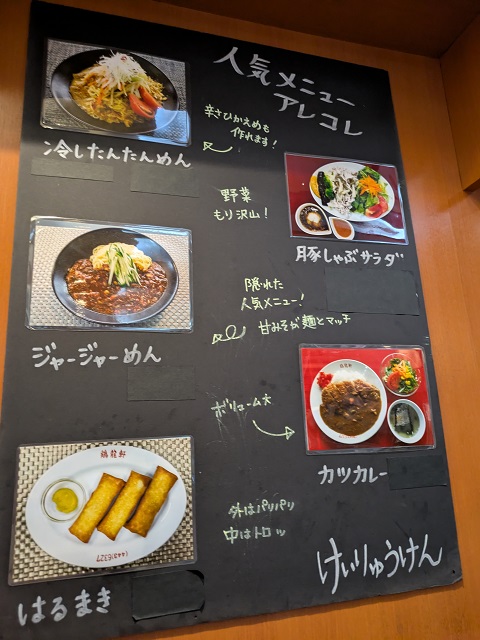 人気メニュー
アレコレ
辛さひかえめも
作れます！
冷したんたんめん
野菜
もり沢山！
豚しゃぶサラダ
隠れた
人気メニュー！
甘みそが麺とマッチ
ジャージャーめん
ボリューム大
カツカレー
鶏龍軒
外はパリパリ
中はトロッ
はるまき
けいりゅうけん